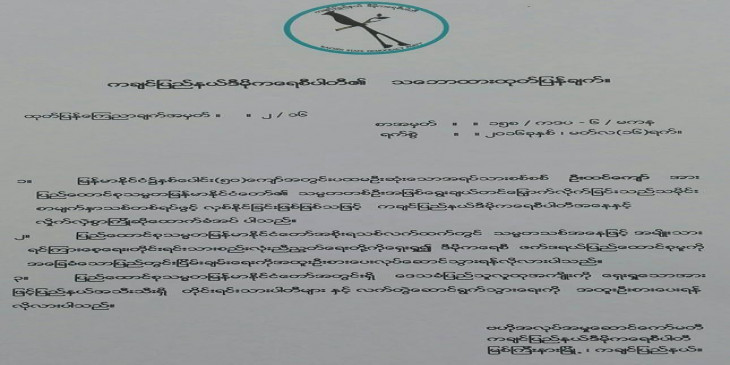 KACHIN STATE DEMOCRACY PARTY
ကချင်ပြည်နယ်ဒီမိုကရေစီပါတီ၏ သဘောထားထုတ်ပြန်ချက်။
ထုတ်ပြန်ကြေညာချက်အမှတ် ။ ။ ၂ / ၁၆
စာအမှတ် ။ ။ ၁၅၈ / ကဒပ - ၆ / မကန
ရက်စွဲ ။ ။ ၂၀၁၆ခုနှစ် ၊ မတ်လ(၁၆)ရက်။
၁။ မြန်မာနိုင်ငံ၌နှစ်ပေါင်း(၅၀)ကျော်အတွင်းပထမဦးဆုံးသောအရပ်သားစစ်စစ် ဦးထင်ကျော် အား
ပြည်ထောင်စုသမ္မတမြန်မာနိုင်ငံတော်၏ သမ္မတတစ်ဦးအဖြစ်ရွေးချယ်တင်မြှောက်လိုက်ခြင်းသည်သမိုင်း
စာမျက်နှာသစ်တစ်ရပ်ဖွင့် လှစ်နိုင်ခြင်းဖြစ်ဖြစ်သဖြင့် ကချင်ပြည်နယ်ဒီမိုကရေစီပါတီအနေနှင့်
လှိုက်လှဲစွာကြိုဆိုထောက်ခံအပ် ပါသည်။
၂။ ပြည်ထောင်စုသမ္မတမြန်မာနိုင်ငံတော်အစိုးရသစ်လက်ထက်တွင် သမ္မတသစ်အနေဖြင့် အမျိုးသား
ရင်ကြားစေ့ရေးတိုင်းရင်းသားစည်းလုံးညီညွတ်ရေးတို့ကိုရှေးရှု၍ ဒီမိုကရေစီ ဖက်ဒရယ်ပြည်ထောင်စုမူကို
အခြေခံသောပြည်တွင်းငြိမ်းချမ်းရေးကိုအထူးဦးစားပေးလုပ်ဆောင်သွားရန်လိုလားပါသည်။
၃။ ပြည်ထောင်စုသမ္မတမြန်မာနိုင်ငံတော်အတွင်းရှိ ဒေသခံပြည်သူလူထုအကျိုးကို ရှေးရှုသောအား
ဖြင့်ပြည်နယ်အသီးသီးရှိ တိုင်းရင်းသားပါတီများ နှင့် လက်တွဲဆောင်ရွက်သွားရေးကို အထူးဦးစားပေးရန်
လိုလားပါသည်။
ဗဟိုအလုပ်အမှုဆောင်ကော်မတီ
ကချင်ပြည်နယ်ဒီမိုကရေစီပါတီ
မြစ်ကြီးနားမြို့ ၊ ကချင်ပြည်နယ်။